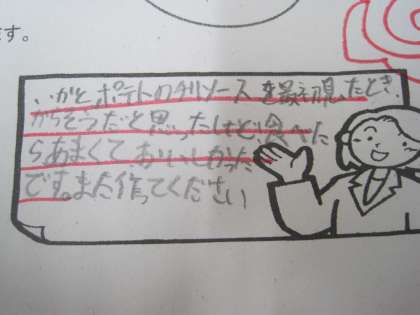 ます。
いかとポテトのチリソースを最初見たとき、
からそうだと思ったけど食べた
らあまくておいしかった
です。また作ってください